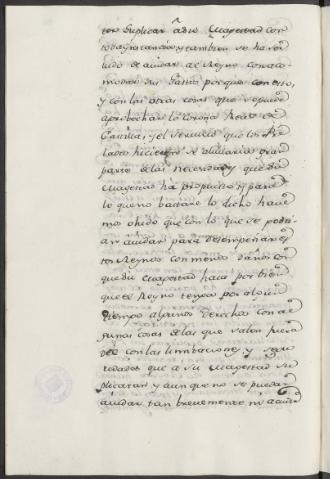 tos suplicar a su Magestad con
toda ynstancia, y tambien se ha ser
bido de aiudar al Reyno con
sus Gastos porque con esto,
y con las otras cosas que se puede
aprobechar la Corona Real de
Castilla, y el servicio que los Per
lados hicieren se aliviaria gran
parte de las necesidades que su
Magestad ha propuesto, y para
lo que no bastare lo dicho have
mos oido que con lo que se podri
an aiudar para desempeñar es
tos Reynos con menos daño es con
que su Magestad haia por bien
que el Reyno tenga por algun
tiempo algunos derechos con al
gunas cosas de las que valen fuera
de él con las limitaciones, y segu
ridades que a su Magestad su
plicaran, y aunque no se puedan
aiudar tan brevemente ni acudir